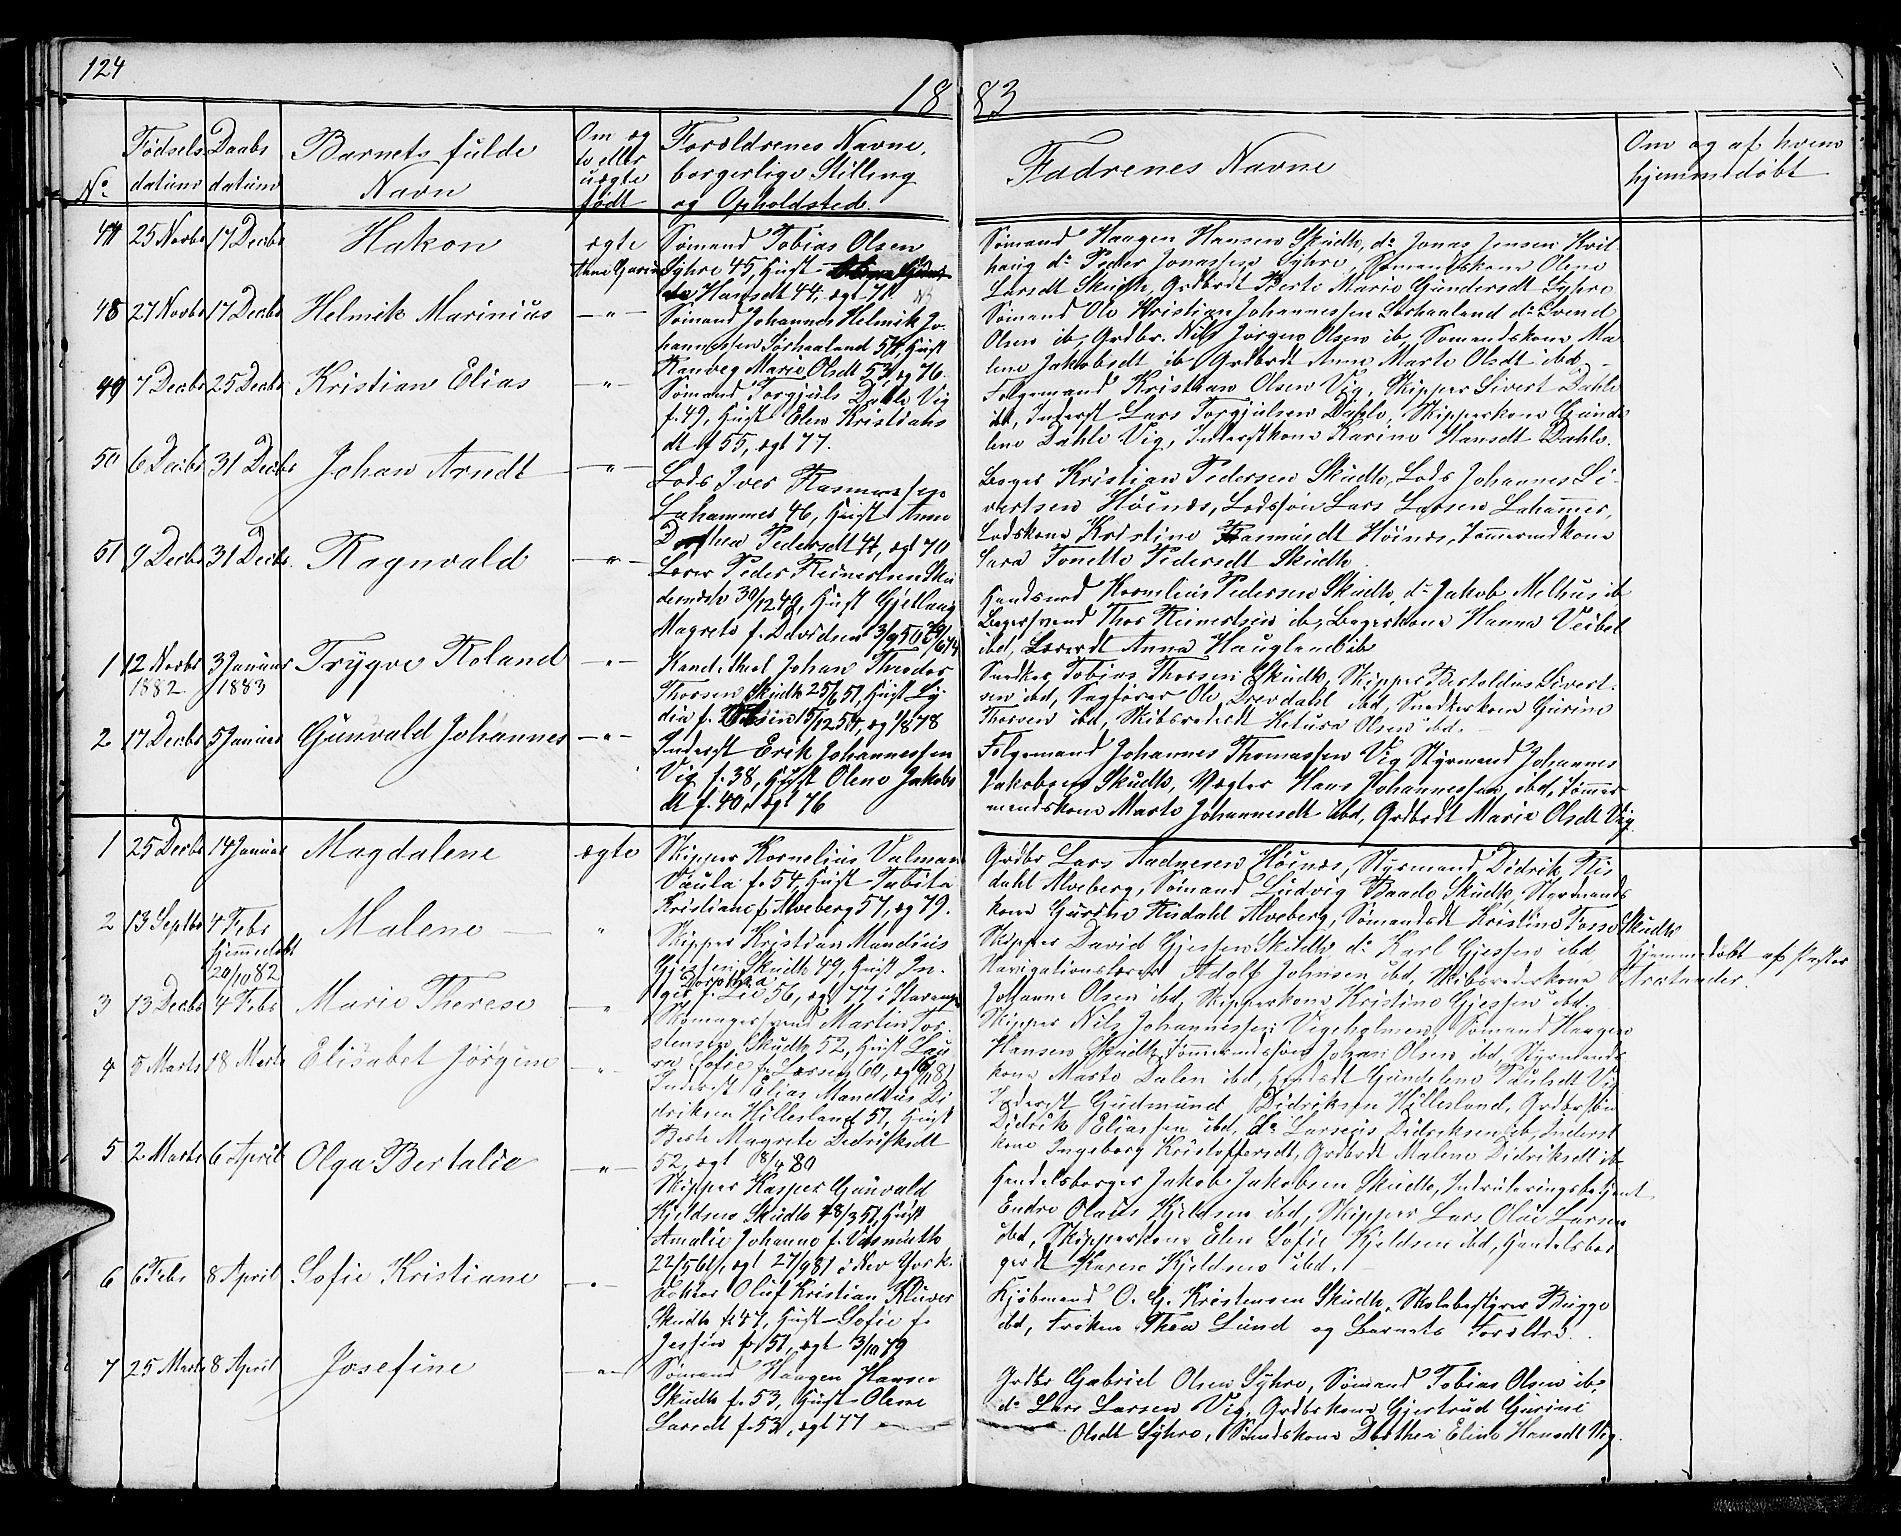 124
18 83
No. Fødsels datum Daabs datum Barnets fulde Navn Om ægte eller uægte født Forældrenes Navne, borgerlige Stilling og Opholdsted. Fadrenes Navne Om og af hvem hjemmedøbt
47 25 Novbr 17 Decbr Hakon ægte
Sømand Tobias Olsen
Anne Gurine Syhre 45, Hust
Hansdt 44, ægt 71
Sømand Haagen Hansen Skudh, do Jonas Jensen Kvil
haug do Peder Jonassen Syhre, Sømandskone Olene
Larsdt Skudh, Grdbrdt Berte Marie Gundersdt Syhre
48 27 Novbr 17 Decbr Helmik Marinius —"—
Sømand Johannes Helmik Jo-
hannessen Sørhaaland 54, Hust
Ranveg Marie Olsdt 53, æg 76.
Sømand Ole Kristian Johannessen Sørhaaland do Svend
Olsen ib, Grdbr. Nils Jørgen Olsen ib, Sømandskone Ma-
lene Jakobsdt ib, Grdbrdt Anne Marte Olsdt ibd.
49 7 Decbr 25 Decbr Kristian Elias —"—
Sømand Torgjuls Dahle Vig
f. 49, Hust Elen Kristians
dt f 55, ægt 77.
Folgemand Kristian Olsen Vig, Skipper Sivert Dahle
ibd, Inderst Lars Torgjulsen Dahle, Skipperkone Gunde
lene Dahle Vig, Inderstkone Karine Hansdt Dahle.
50 6 Decbr 31 Decbr Johan Arndt —"—
Lods Iver Rasmussen
Lahammer 46, Hust Anne
Dorthea Pedersdt 47, ægt 70
Bager Kristian Pedersen Skudh, Lods Johannes Si-
vertsen Høines, Lodssøn Lars Larsen Lahammer,
Lodskone Kristine Rasmusdt Høines, Tømmermdkone
Sara Tonette Pedersdt Skudh.
51 9 Decbr 31 Decbr. Ragnvald —"—
Lærer Peder Reinertsen Sku
desnesh 30/12 49, Hust Gjellaug
Magrete f. Davidsen 3/9 50
Handsmd Kornelius Pedersen Skudh, do Jakob Melhus ib
Bagersvend Thor Reinertsen ib, Bagerkone Hanna Veibel
ibd, Lærerdt Anna Haugland ib
1 12 Novbr 1882. 3 Januar 1883 Trygve Roland —"—
Kand. theol Johan Theodor
Thorsen Skudh 25/6 51, Hust Ly-
dia f. 15/12 54, æg 1/8 78
Snedker Tobias Thorsen Skudh, Skipper Bertoldus Sivert-
sen ibd, Sagfører Ole Drevdahl ibd, Snedkerkone Gurine
Thorsen ibd, Skibsrederdt Ketura Olsen ibd.
2 17 Decbr 5 Januar Gunvald Johannes —"—
Inderst Erik Johannessen
Vig f. 38, Hust Olene Jakobs
dt f. 40, ægt 76
Folgemand Johannes Thomassen Vig, Styrmand Johannes
Jakobsen Skudh, Vægter Hans Johannessen ibd, Tømmer
mandskone Marte Johannesdt ibd, Grdbrdt Marie Olsdt Vig
1 25 Decbr 14 Januar Magdalene ægte
Skipper Kornelius Valman
Vaula f. 54, Hust Tabita
Kristiane f. Alveberg 57, æg 79.
Grdbr Lars Aadnesen Høines, Styrmand Didrik Ris
dahl Alveberg, Sømand Ludvig Baade Skudh, Styrmands
kone Gurine Risdahl Alveberg, Sømandsdt Kristine Fosse Skudh
2 13 Septbr 4 Febr Hjemmedøbt 29/10 82 Malene — "
Skipper Kristian Mandius
Gjessen Skudh 49, Hust In-
ger Dorothea f. Lie 56, ægt 77 i Stavanger
Skipper David Gjessen Skudh do Karl Gjessen ibd
Navigationslærer Adolf Johnsen ibd, Skibsrederkone
Johanne Olsen ibd, Skipperkone Kristine Gjessen ibd.
Hjemmedøbt af Præsten
3 13 Decbr 4 Febr Marie Therese —"—
Skomagersvend Martin Tor-
stensen Skudh 52, Hust Lau
ra Sofie f. Larsen 60, æg 81
Skipper Nils Johannessen Vigeholmen, Sømand Haagen
Hansen Skudh, Tømmermdssøn Johan Olsen ibd, Styrmands
kone Marte Dalen ibd, Handsdt Gundelene Paulsdt Vig
4 5 Marts 18 Marts Elisabet Jørgine —"—
Inderst Elias Mandius Di
driksen Hillesland 51, Hust
Berte Magrete Didriksdt
52, ægt 18/4 80
Inderst Gudmund Didriksen Hillesland, Grdbrsøn
Didrik Eliassen ibd, do Larseus Didriksen ib, Inderst
kone Ingeborg Kristoffersdt, Grdbrdt Malene Didriksdt ib
5 2 Marts 6 April Olga Bertalie —"—
Skipper Kasper Gunvald
Kjeldsen Skudh 18/3 51, Hust
Amalie Johanne f. Vasmuth
22/5 61, ægt 27/9 81 i New York.
Handelsborger Jakob Jakobsen Skudh, Inrulleringsbetjent
Endre Olaus Kjeldsen ibd, Skipper Lars Olai Larsen
ibd, Skipperkone Elen Sofie Kjeldsen ibd, Handelsbor
gerdt Karen Kjeldsen ibd.
6 6 Febr 8 April Sofie Kristiane —"—
Doktor Oluf Kristian Kluver
Skudh f. 47, Hust Sofie f.
Jessen f. 51, ægt 3/10 79
Kjøbmand O. G. Kristensen Skudh, Skolebestyrer Brigge
ibd, Frøken Thea Lund og Barnets Forældre.
7 25 Marts 8 April Josefine —"—
Sømand Haagen Hansen
Skudh f. 53, Hust Olene
Larsdt f. 53, ægt 77
Grdbr Gabriel Olsen Syhre, Sømand Tobias Olsen ib,
do Lars Larsen Vig, Grdbrkone Gjertrud Gurine
Olsdt Syhre, Sømdskone Dorthea Eline Hansdt Vig.